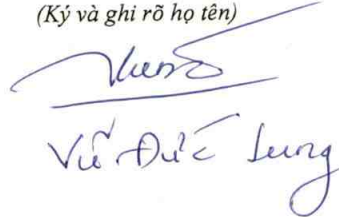 (Ký và ghi rõ họ tên)
Vũ Đức Lung